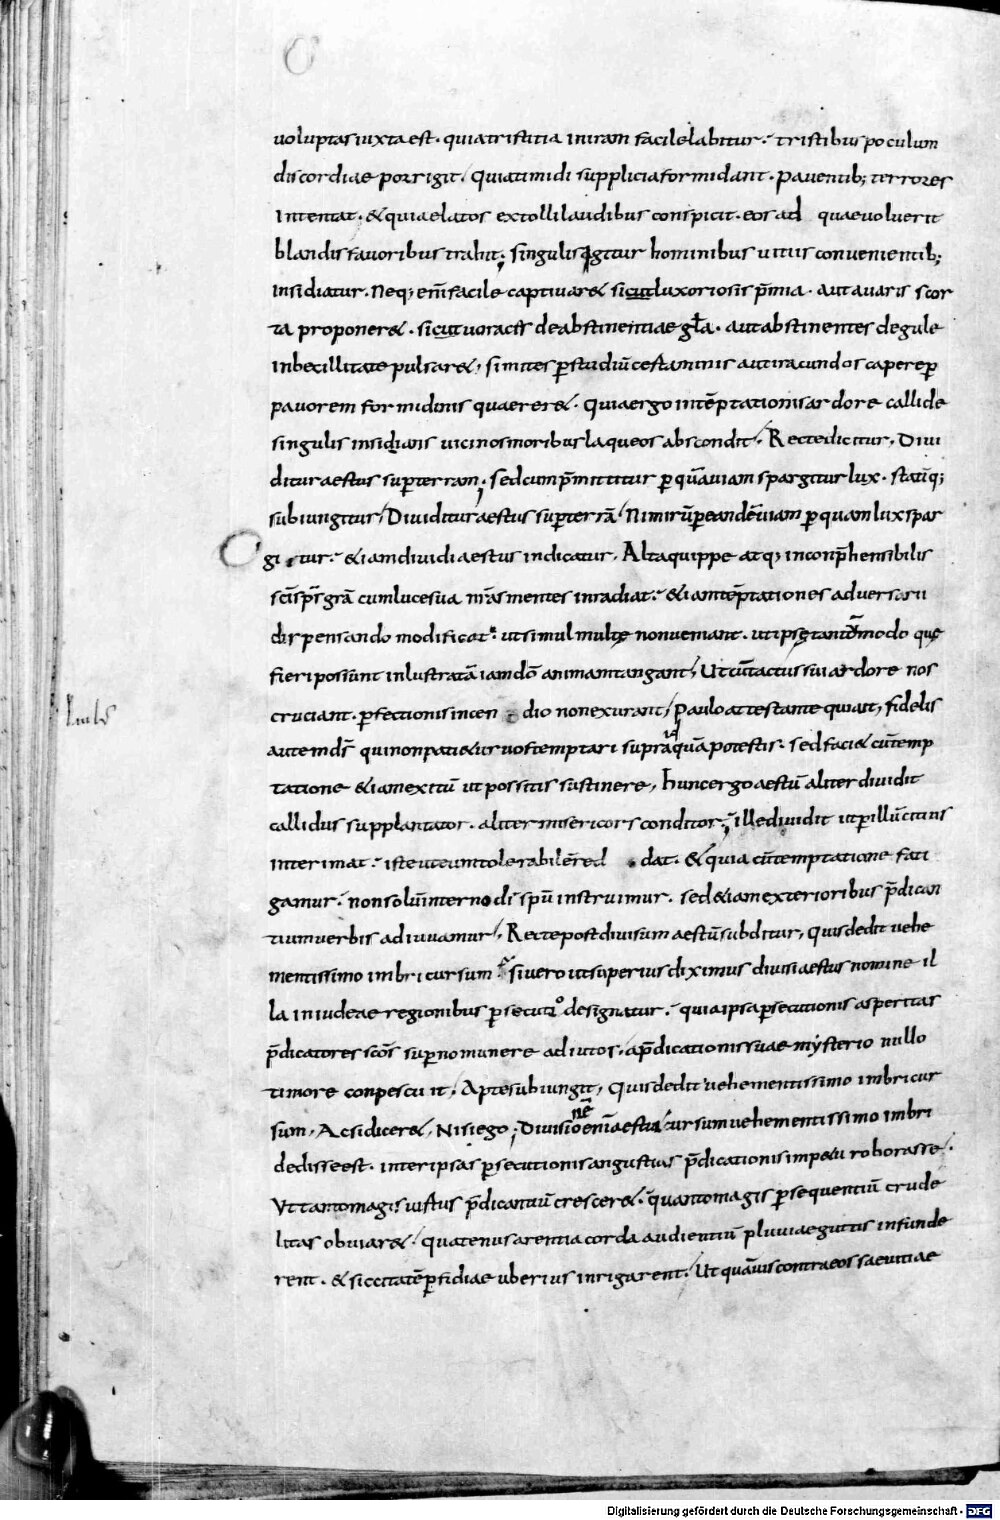 uoluptas iuxta est. quia tristitia in iram facile labitur. tristibus poculum
discordiae porrigit. Quia timidi supplicia formidant. pauentib; terrores
intentat. & quia elatos extolli laudibus conspicit. eos ad quae uoluerit
blandis fauoribus trahit. singulis igitur hominibus uitiis conuenientib;
insidiatur. Neq; eni facile captiuar& si cut luxoriosis pmia. aut auaris scor
ta proponer&. si cut uoraces de abstinentiae gla. aut abstinentes de gule
inbecillitate pulsar&, si mites p studiu certaminis aut iracundos capere p
pauorem formidinis quaerer&. Quia ergo in teptationis ardore callide
singulis insidians uicinos moribus laqueos abscondit. Recte dicitur. Diui
ditur aestus sup terram. sed cum pmittitur p qua uiam spargitur lux. statiq;
subiungitur. Diuiditur aestus sup terra. Nimiru p eande uiam p quam lux spar
gitur. & iam diuidi aestus indicatur. Alta quippe atq; inconphensibilis
sci sps gra cum luce sua nras mentes inradiat. & iam teptationes aduersarii
dispensando modificat. ut simul multę non ueniant. ut ipsę tantummodo quę
fieri possunt inlustrata iam do animam tangant. Ut cu tactus sui ardore nos
cruciant. pfectionis incendio non exurant. paulo attestante qui ait, fidelis
Paulus
autem ds qui non pati&ur uos temptari supra id qua potestis. sed faci& cu temp
tatione &iam exitu ut possitis sustinere. hunc ergo aestu aliter diuidit
callidus supplantator. aliter misericors conditor. ille diuidit ut p illu citius
interimat. iste ut eu intolerabile reddat. & quia cu temptatione fati
gamur. non solu interno di spu instruimur. sed &iam exterioribus pdican
tium uerbis adiuuamur. Recte post diuisum aestu subditur, Quis dedit uehe
mentissimo imbri cursum. si uero ut superius diximus diuisi aestus nomine il
la in iudeae regionibus psecutio designatur. quia ipsa psecutionis asperitas
pdicatores scos supno munere adiutos. a pdicationis suae mysterio nullo
timore conpescuit. Apte subiungit, Quis dedit uehementissimo imbri cur
sum. Ac si dicer&. Nisi ego. Diuisione eni aestus cursum uehementissimo imbri
dedisse est. inter ipsas psecutionis angustias pdicationis imp&u roborasse.
Ut tanto magis uirtus pdicantiu crescer&. quanto magis psequentiu crude
litas obuiar&. quatenus arentia corda audientiu pluuiae guttis infunde
rent. & siccitate pfidiae uberius inrigarent. Ut quauis contra eos saeuitiae
Digitalisierung gefördert durch die Deutsche Forschungsgemeinschaft - DFG